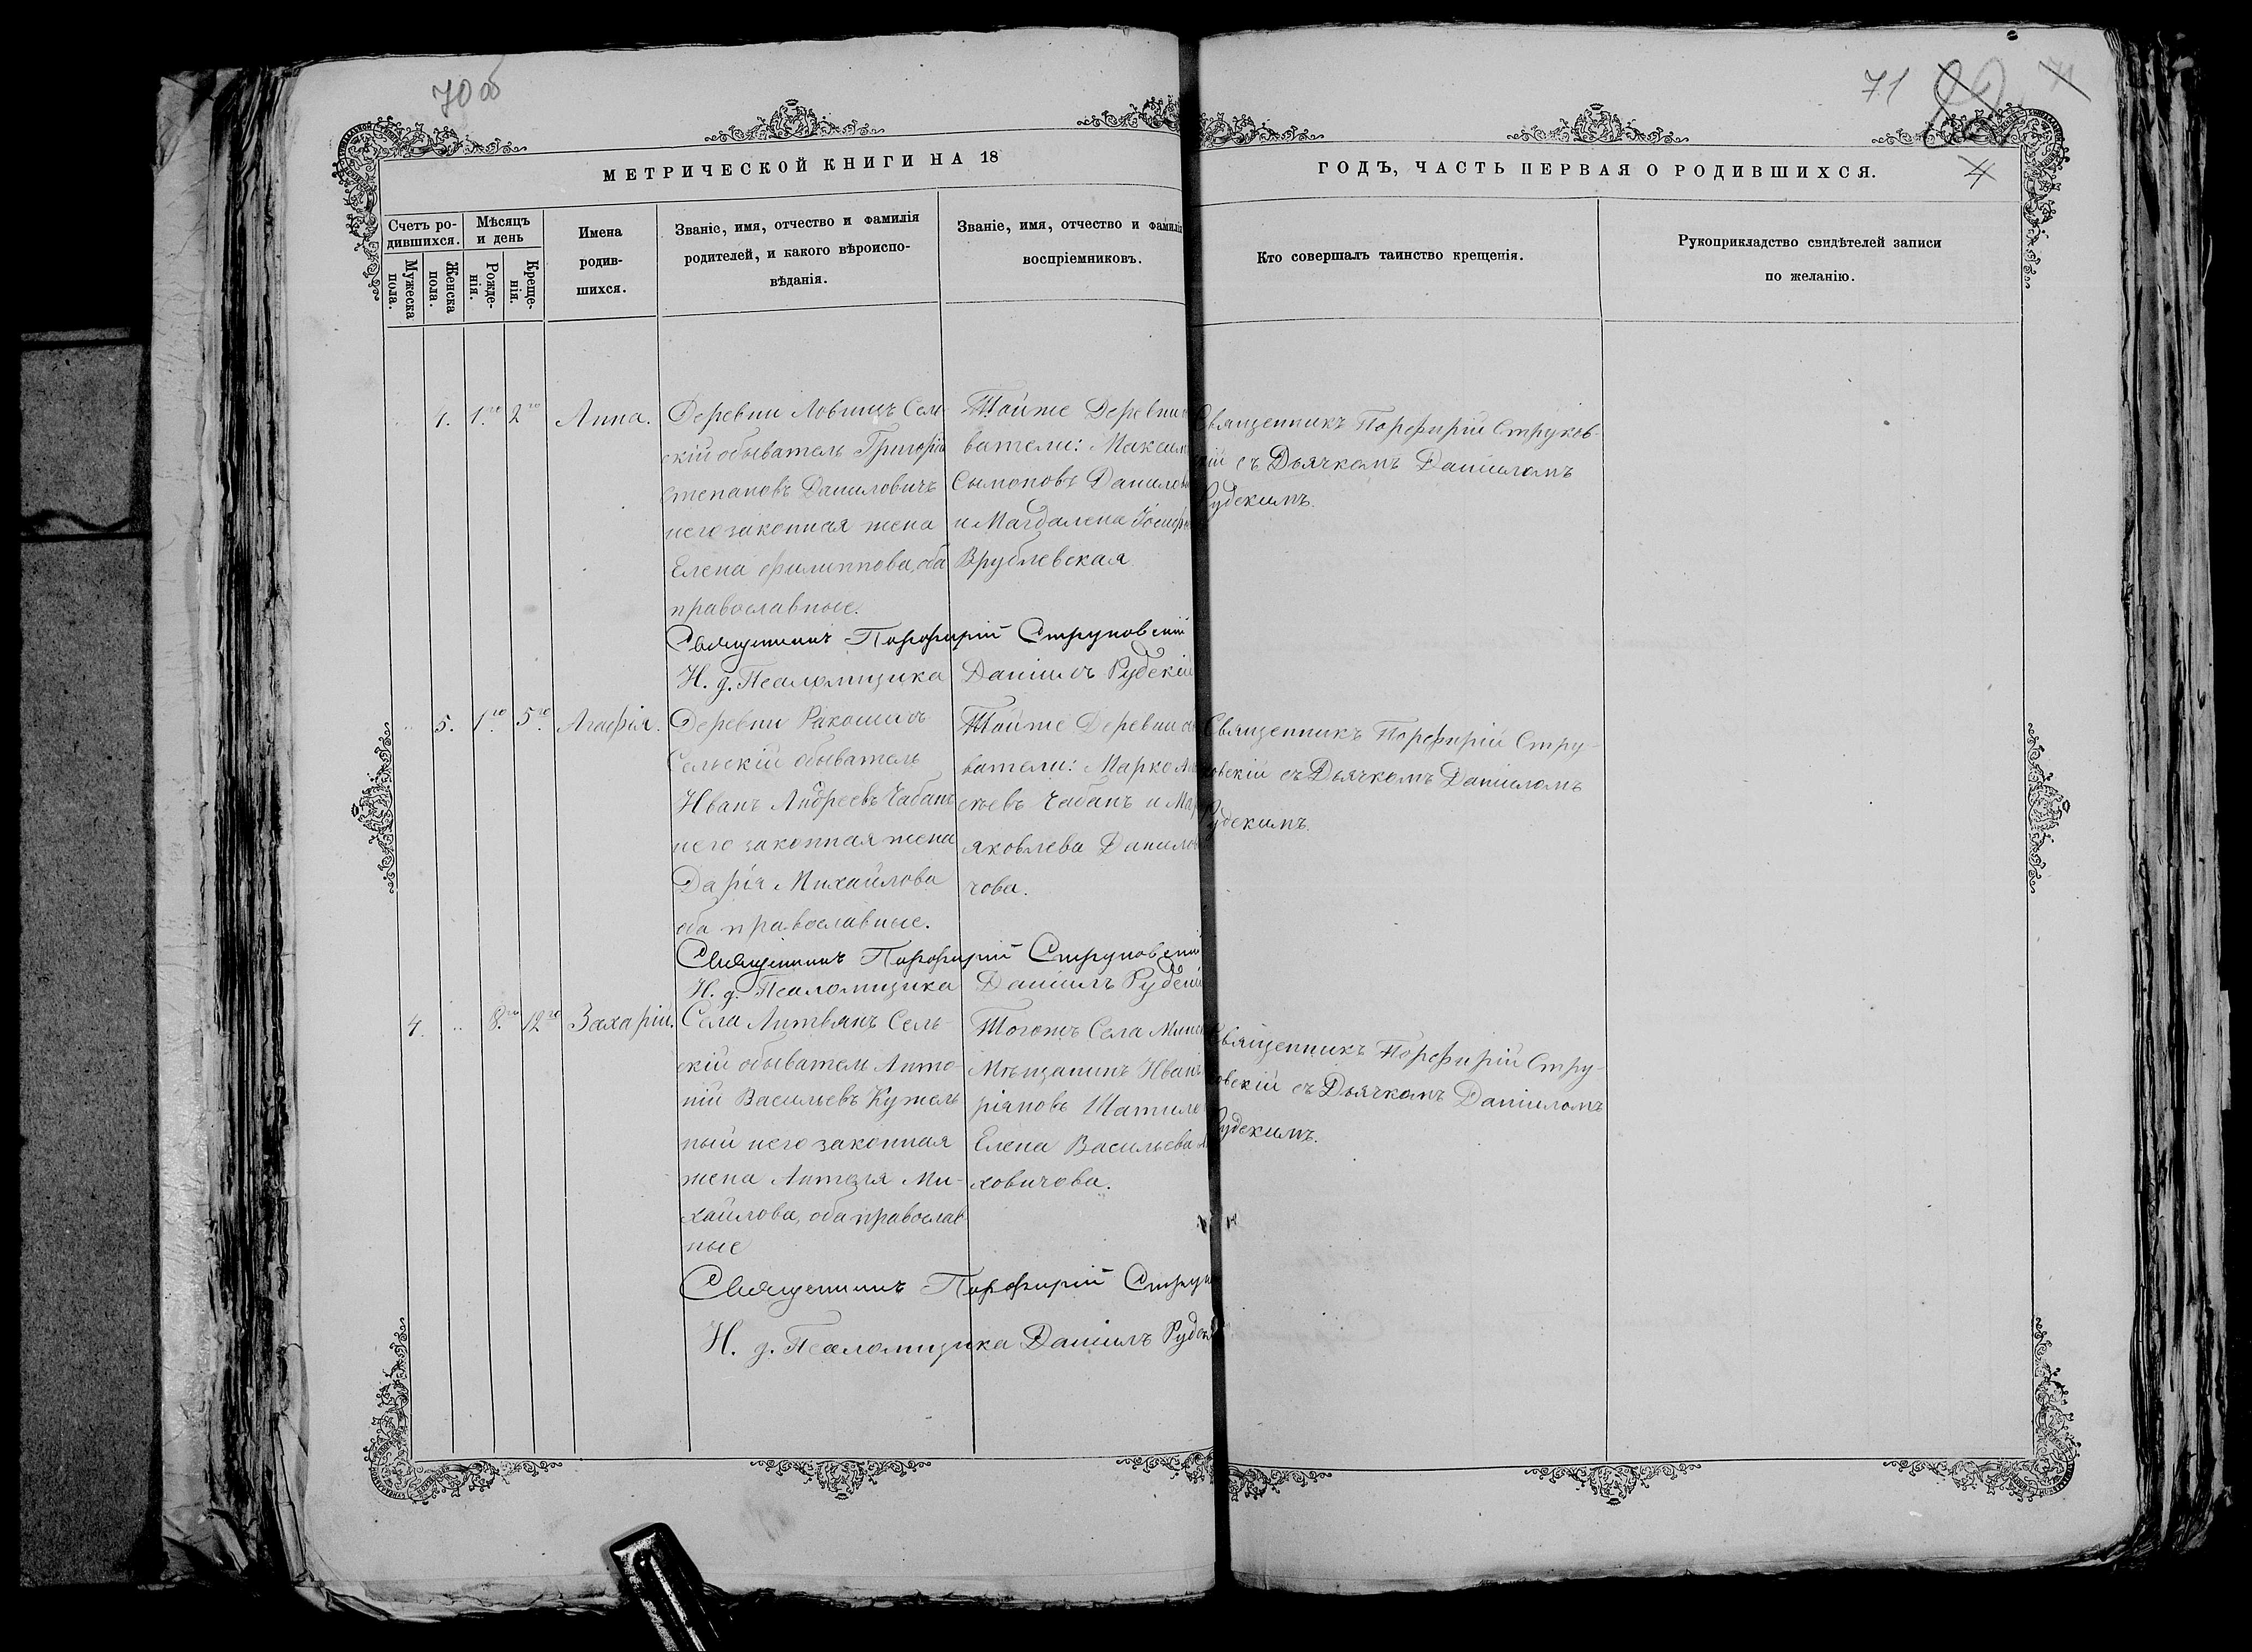 70 об
71
МЕТРИЧЕСКОЙ КНИГИ НА 18
ГОДЪ, ЧАСТЬ ПЕРВАЯ О РОДИВШИХСЯ.
Счетъ ро-
дившихся.
Мужеска
пола.
Женска
пола.
Мѣсяцъ
и день
Рожде-
нія.
Креще-
нія.
Имена
родив-
шихся.
Званіе, имя, отчество и фамилія
родителей, и какого вѣроиспо-
вѣданія.
Званіе, имя, отчество и фамилія
воспріемниковъ.
Кто совершалъ таинство крещенія.
Рукоприкладство свидѣтелей записи
по желанію.
4. 1.го 2го Анна.
Деревни Ловищъ Сель
скій обыватель Григорій
Степановъ Даниловичъ
и его законная жена
Елена Филиппова, оба
православные.
Тойже Деревни
ватели: Максим
Сымоновъ Данило
и Магдалена Іосиф
Врублевская
Священникъ Порфирій Струков-
кій съ Дьячкомъ Даніиломъ
Рудскимъ.
Священникъ Порфирій Струковскій
И. д. Псаломщика Даніилъ Рудскій
5. 1.го 5.го Агафія.
Деревни Ракошичъ
Сельскій обыватель
Иванъ Андреевъ Чабанъ
и его законная жена
Дарія Михайлова
оба православные.
Тойже Деревни
ватели: Марко
сѣевъ Чабанъ и Мар
Яковлева Данилов
чова.
Священникъ Порфирій Стру-
ковскій съ Дьячкомъ Даніиломъ
Рудскимъ.
Священникъ Порфирій Струковскій
И. д. Псаломщика Даніилъ Рудскій
4. 8.го 12го Захарій.
Села Литвянъ Сель-
скій обыватель Анто-
ній Васильевъ Кужель
ный и его законная
жена Антося Ми-
хайлова, оба православ
ные
Тогожъ Села Минск
Мѣщанинъ Иванъ
ріяновъ Шатило
Елена Васильева
ховичова.
Священникъ Порфирій Стру-
ковскій съ Дьячкомъ Даніиломъ
Рудскимъ.
Священникъ Порфирій Струк
И. д. Псаломщика Даніилъ Рудск